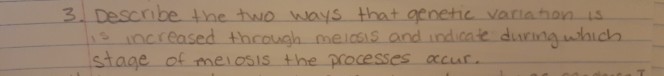 3. Describe the two ways that genetic variation is
is increased through meiosis and indicate during which
stage of meiosis the processes occur.